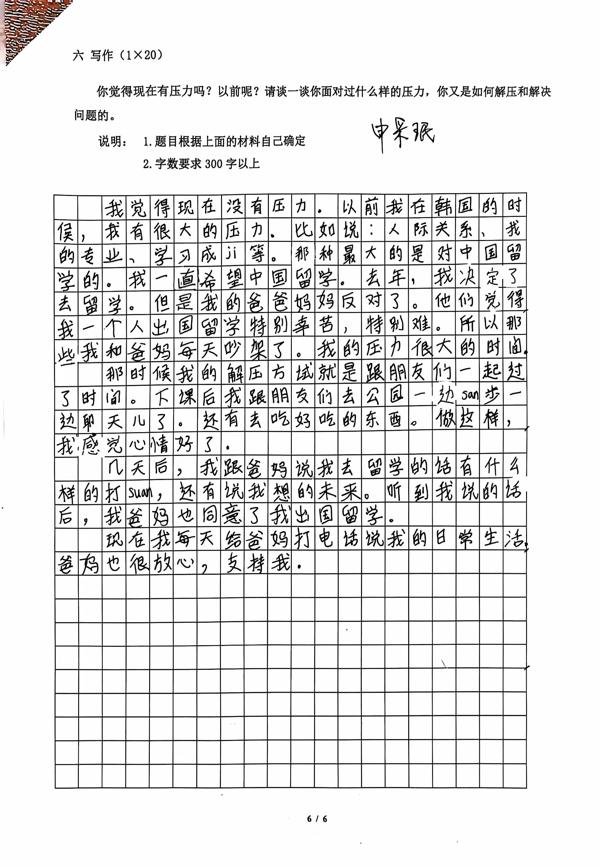 六 写作（1×20）
你觉得现在有压力吗？以前呢？请谈一谈你面对过什么样的压力，你又是如何解压和解决
问题的。
说明： 1.题目根据上面的材料自己确定
2.字数要求 300 字以上
申采珉
我觉得现在没有压力．以前我在韩国的时
候，我有很大的压力．比如说：人际关系、我
的专业、学习成ji等。那种最大的是对中国留
学的．我一直希望中国留学．去年，我决定了
去留学．但是我的爸爸妈妈反对了。他们觉得
我一个人出国留学特别辛苦，特别难。所以那
些我和爸妈每天吵架了。我的压力很大的时间．
那时候我的解压方试就是跟朋友们一起过
了时间。下课后我跟朋友们去公园一边san步一
边聊天儿了。还有去吃好吃的东西。做这样，
我感觉心情好了．
几天后，我跟爸妈说我去留学的话有什么
样的打suan，还有说我想的未来。听到我说的话
后，我爸妈也同意了我出国留学。
现在我每天给爸妈打电话说我的日常生活．
爸妈也很放心，支持我．
6 / 6